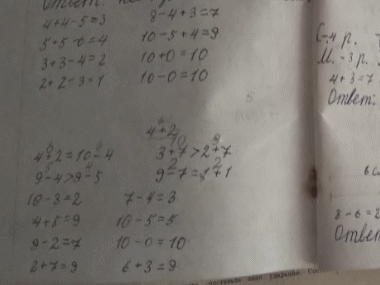 Ответ:
4+4-5=3
8-4+3=7
5+5-0=4
10-5+4=9
3+3-4=2
10+0=10
2+2-3=1
10-0=10
4+2
4+2=10-4
3+7>2+7
9-4>9-5
9-7=1+1
10-3=2
7-4=3
4+5=9
10-5=5
9-2=7
10-0=10
2+7=9
6+3=9
С.-4 р.
М.-3 р.
4+3=7
Ответ:
8-6=2
Ответ